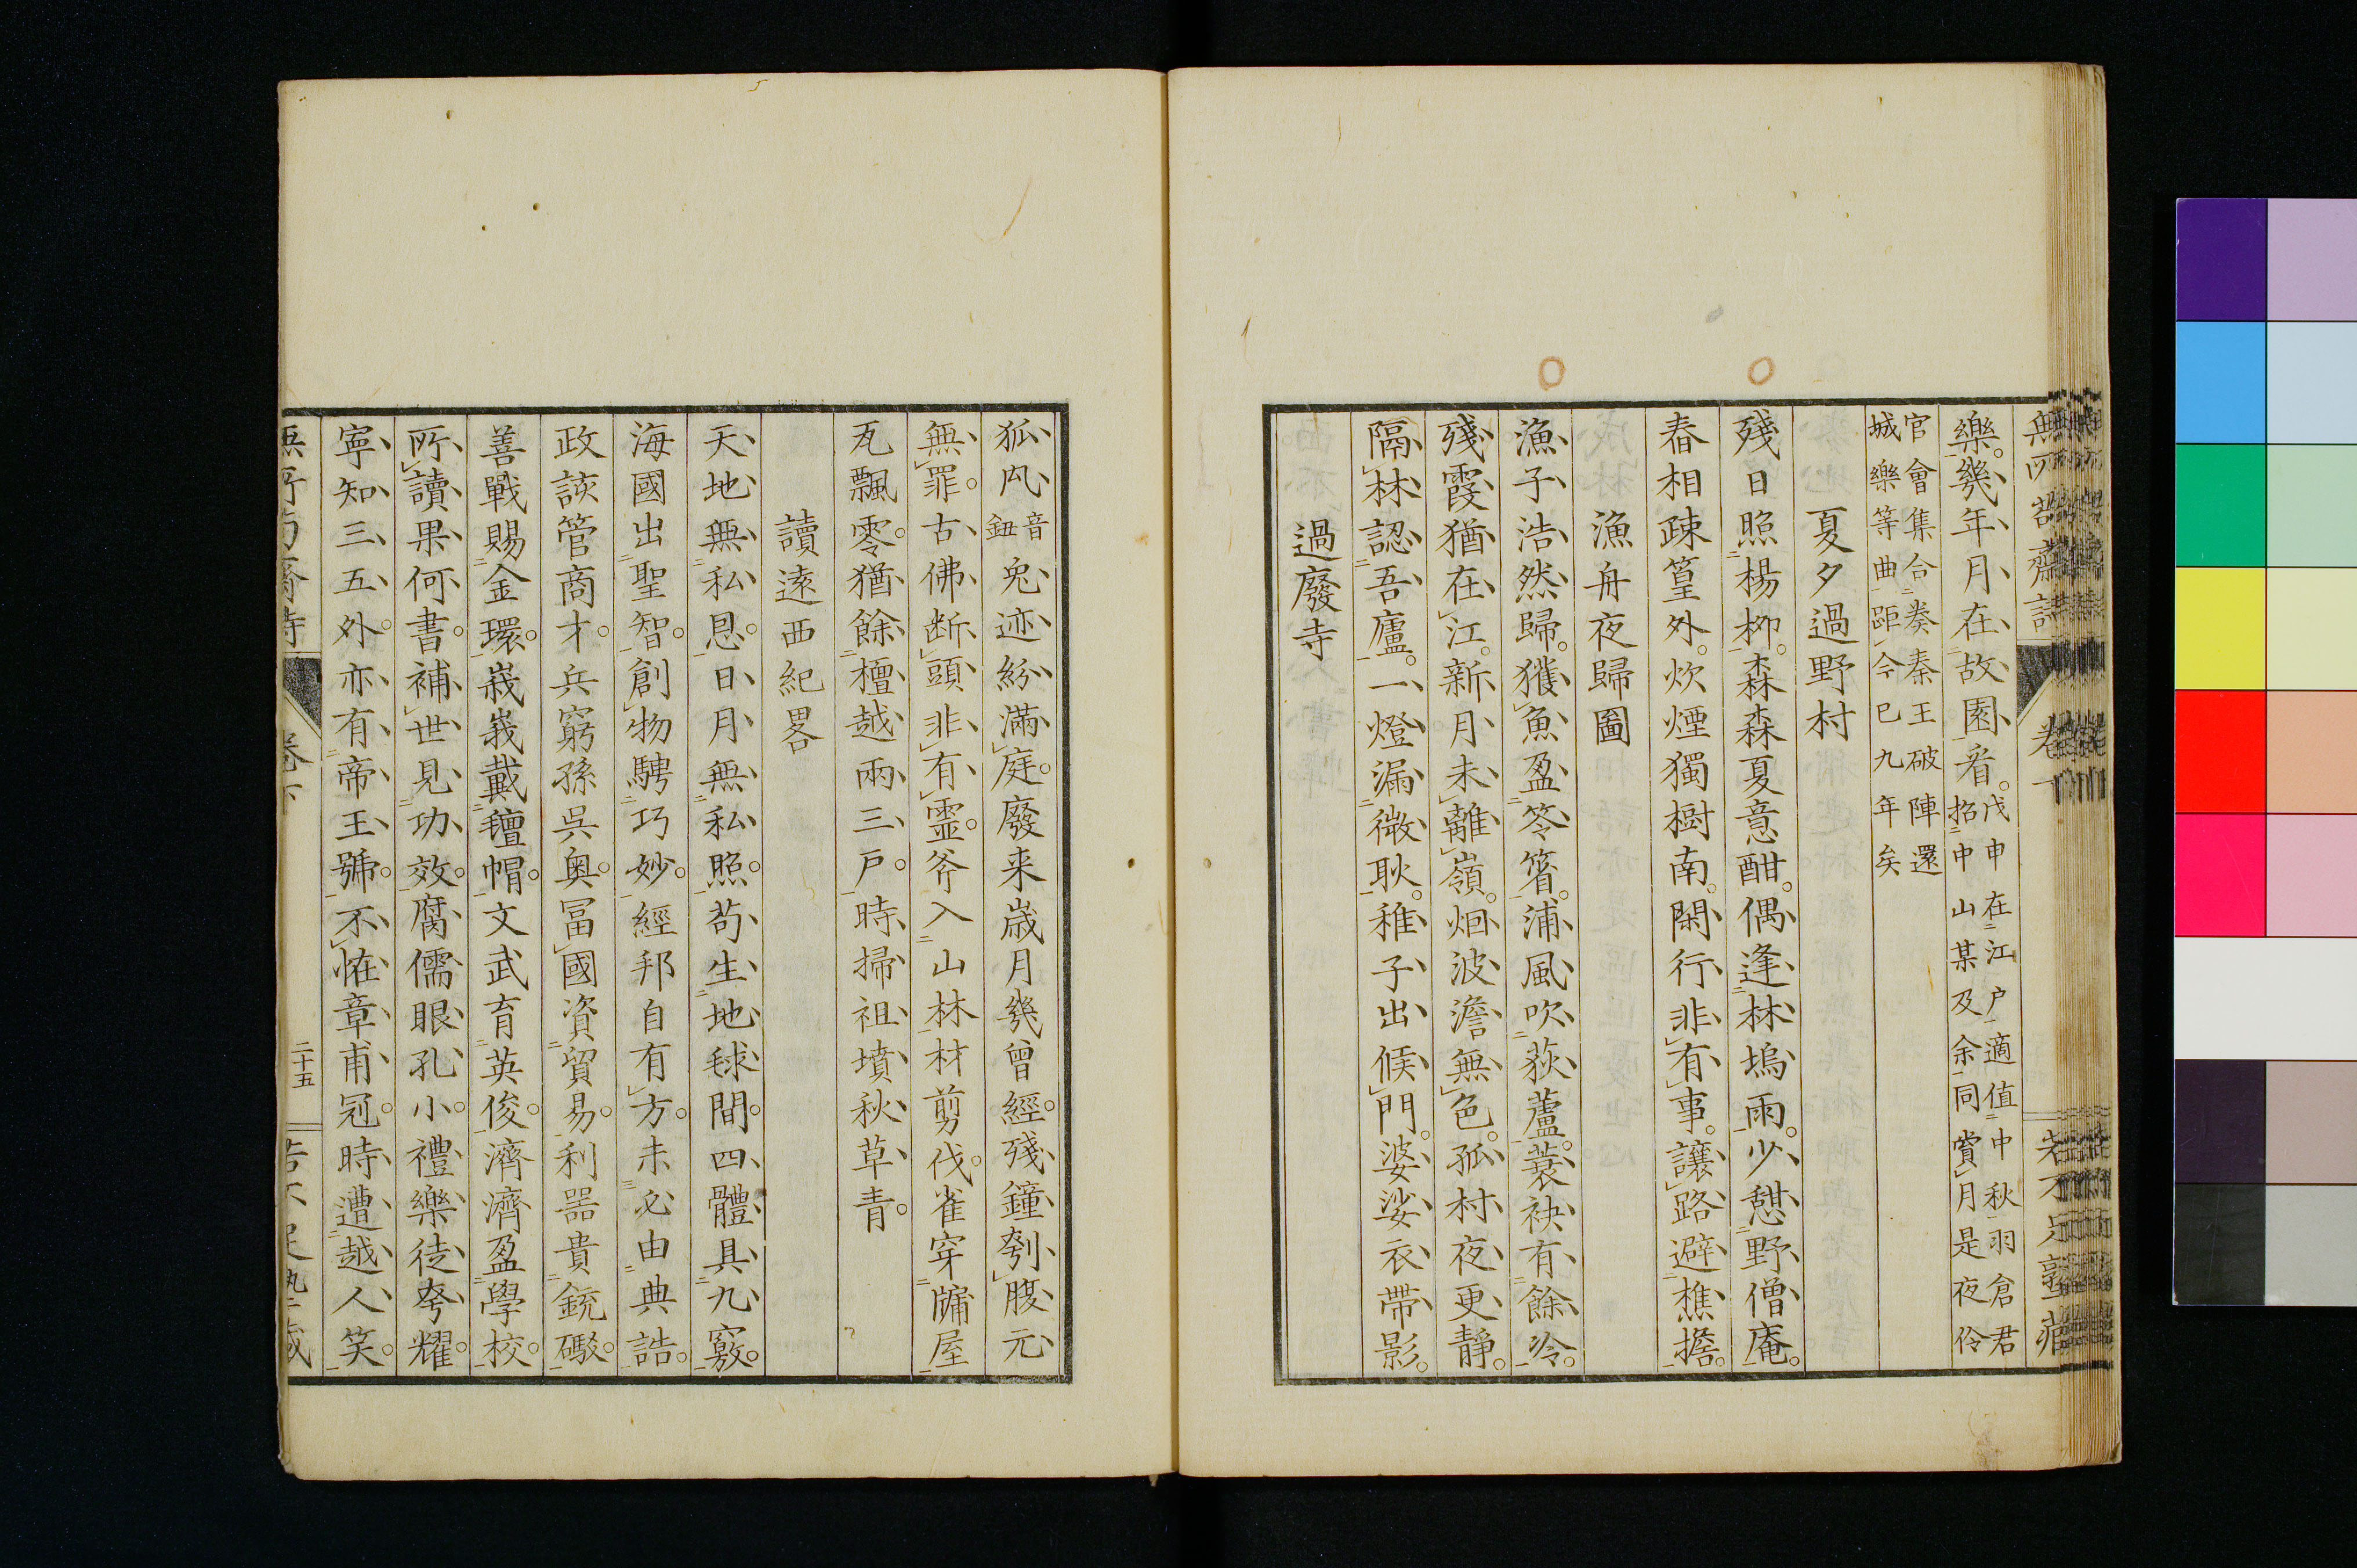 樂。幾年月在故園看。戊申在江戶適值中秋羽倉君
招中山某及余同賞月是夜伶
官會集合奏秦王破陣還
城樂等曲距今已九年矣
夏夕過野村
殘日照楊柳。森森夏意酣。偶逢林塢雨。少憩野僧庵。
春相疎篁外。炊煙獨樹南。閑行非有事。讓路避樵擔。
漁舟夜歸圖
漁子浩然歸。獲魚盈笭箵。浦風吹荻蘆。蓑袂有餘冷。
殘霞猶在江。新月未離嶺。烟波澹無色。孤村夜更靜。
隔林認吾廬。一燈漏微耿。稚子出候門。婆娑衣帶影。
過廢寺
狐凨音鈕兔迹紛滿庭。廢来歳月幾曾經。殘鐘刳腹元
無罪。古佛断頭非有靈。斧入山林材剪伐。雀穿牖屋
瓦飄零。猶餘檀越兩三戶。時掃祖墳秋草青。
讀遠西紀畧
天地無私恩。日月無私照。苟生地球間。四體具九竅。
海國出聖智。創物騁巧妙。經邦自有方。未必由典誥。
政該管商才。兵窮孫呉奥。冨國資貿易。利器貴銃礮。
善戰賜金環。峩峩戴氊帽。文武育英俊。濟濟盈學校。
所讀果何書。補世見功效。腐儒眼孔小。禮樂徒夸耀。
寧知三五外。亦有帝王號。不恠章甫冠。時遭越人笑。
卷下
二十五